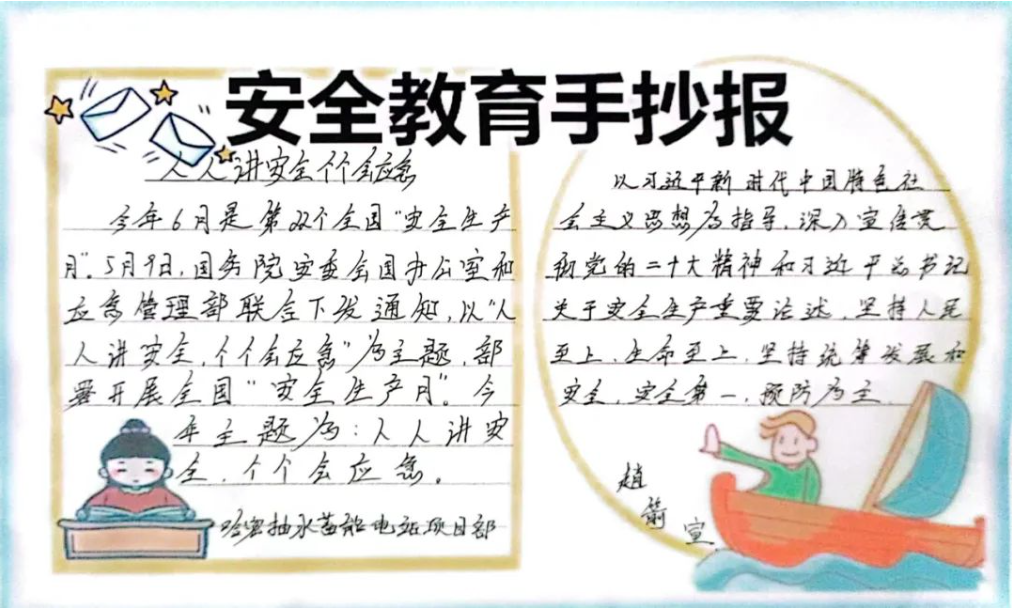 安全教育手抄报
人人讲安全个个会应急
今年6月是第22个全国"安全生产
月"。5月9日，国务院安委会办公室和
应急管理部联合下发通知，以"人
人讲安全，个个会应急"为主题，部
署开展全国"安全生产月"。今
年主题为：人人讲安
全，个个会应急。
哈密抽水蓄能电站项目部
以习近平新时代中国特色社
会主义思想为指导，深入宣传贯
彻党的二十大精神和习近平总书记
关于安全生产重要论述，坚持人民
至上，生命至上，坚持统筹发展和
安全，安全第一，预防为主
赵
箭
宣